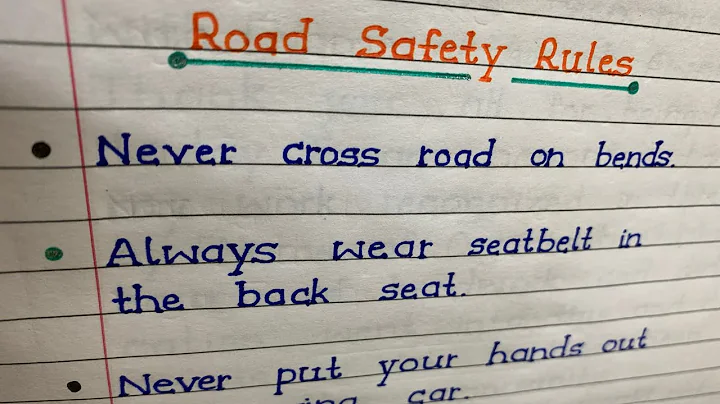 Road Safety Rules
Never cross road on bends.
Always wear seatbelt in
the back seat.
Never put your hands out
car.